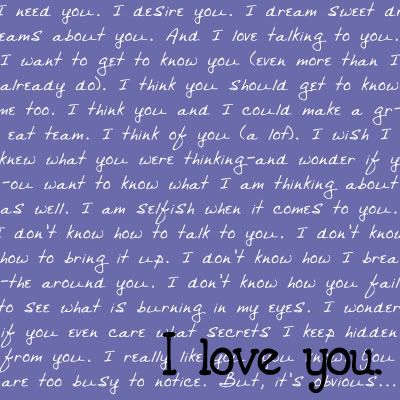 I need you. I desire you. I dream sweet dr-
eams about you. And I love talking to you.
I want to get to know you (even more than I
already do). I think you should get to know
me too. I think you and I could make a gr-
eat team. I think of you (a lot). I wish I
knew what you were thinking-and wonder if y
-ou want to know what I am thinking about
as well. I am selfish when it comes to you.
I don't know how to talk to you. I don't know
how to bring it up. I don't know how I brea
-the around you. I don't know how you fail
to see what is burning in my eyes. I wonder
if you even care what secrets I keep hidden
from you. I really like you, you know. You
are too busy to notice. But, it's obvious...
I love you.